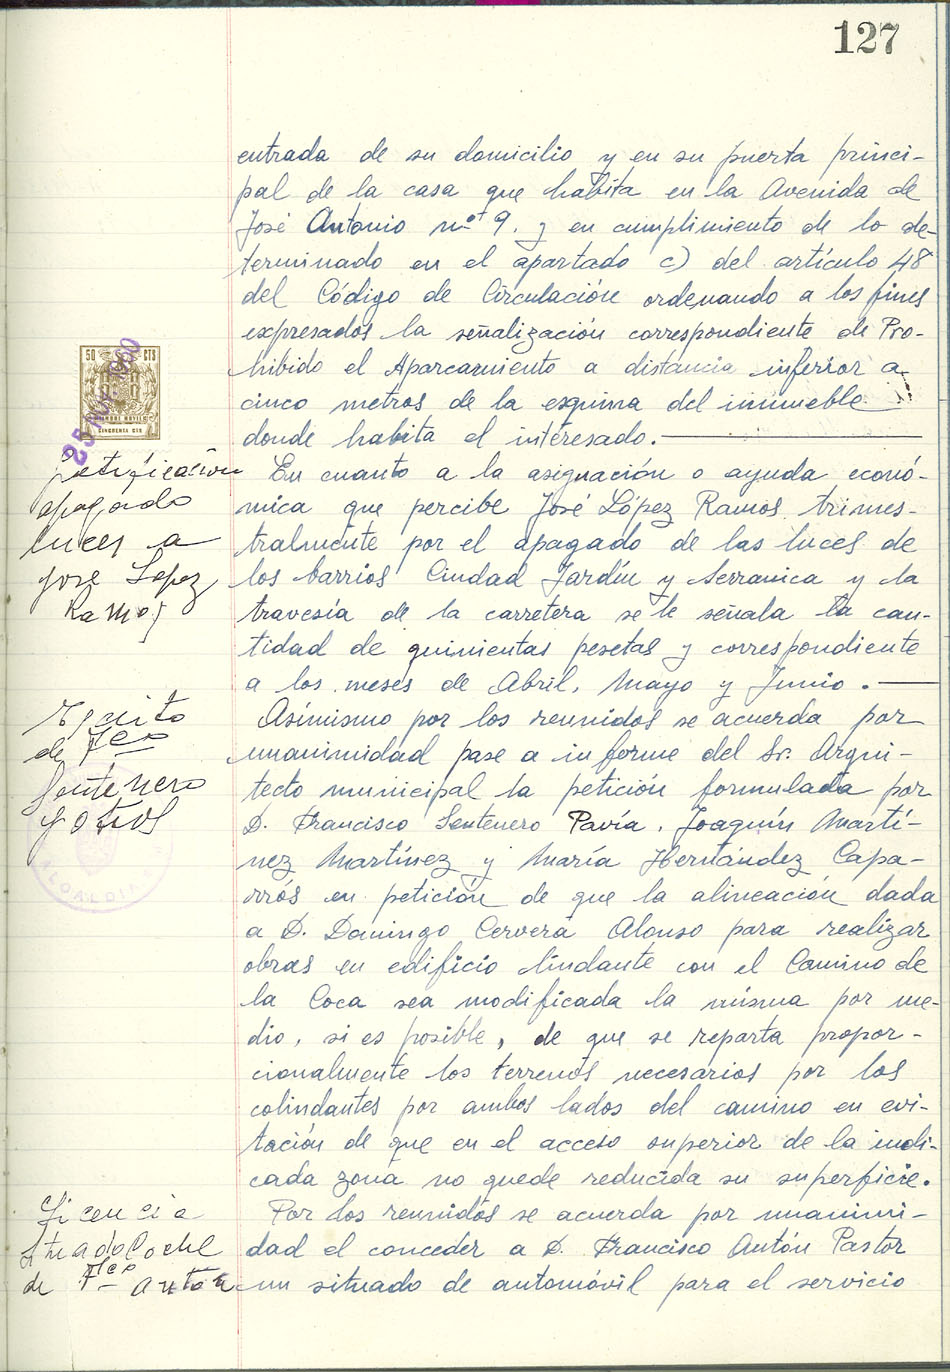 127
entrada de su domicilio y en su puerta princi-
pal de la casa que habita en la Avenida de
José Antonio nº 9. y en cumplimiento de lo de-
terminado en el apartado c) del artículo 48
del Código de Circulación ordenando a los fines
expresados la señalización correspondiente de Pro-
hibido el Aparcamiento a distancia inferior a
cinco metros de la esquina del inmueble
donde habita el interesado.
50 CTS
CINCUENTA CTS
gratificación
apagado
luces a
José Lopez
Ramos
En cuanto a la asignación o ayuda econó-
mica que percibe José López Ramos trimes-
tralmente por el apagado de las luces de
los barrios Ciudad Jardín y Serranica y la
travesía de la carretera se le señala la can-
tidad de quinientas pesetas y correspondiente
a los meses de Abril, Mayo y Junio.
Escrito
de Fco
Sentenero
y otros
ALCALDIA
Asimismo por los reunidos se acuerda por
unanimidad pase a informe del Sr. Arqui-
tecto municipal la petición formulada por
D. Francisco Sentenero Pavía, Joaquín Martí-
nez Martínez y María Hernández Capa-
rrós en petición de que la alineación dada
a D. Domingo Cervera Alonso para realizar
obras en edificio lindante con el Camino de
la Coca sea modificada la misma por me-
dio, si es posible, de que se reparta propor-
cionalmente los terrenos necesarios por los
colindantes por ambos lados del camino en evi-
tación de que en el acceso superior de la indi-
cada zona no quede reducida su superficie.
Licencia
situado Coche
de Fco Antón
Por los reunidos se acuerda por unanimi-
dad el conceder a D. Francisco Antón Pastor
un situado de automóvil para el servicio